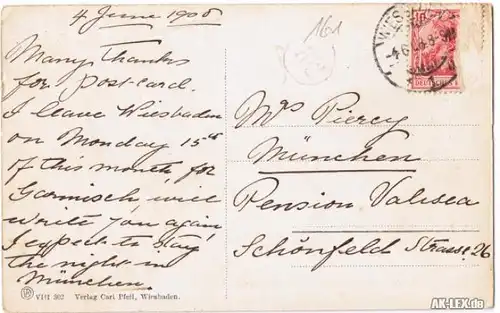 4 June 1908
161
WIESB
-4.6.08.8-9N
Many Thanks
for post-card.
I leave Wiesbaden
on Monday 15th
of this month for
Garmisch, will
write you again,
I expect to stay
the night in
München.
Mrs Piercy
München
Pension Valisea
Schönfeld Strasse 26
VIII 302 Verlag Carl Pfeil, Wiesbaden.
AK-LEX.de